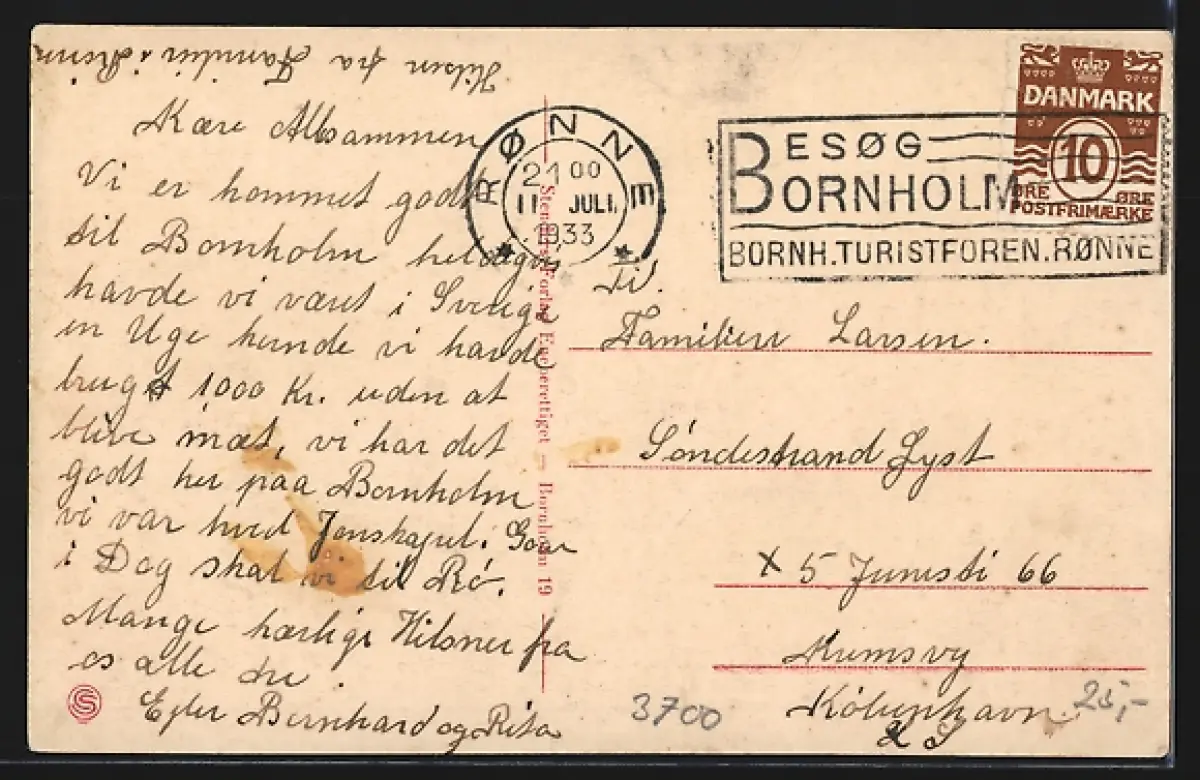 Hilsen fra Familien i Rønne
Kære Allesammen
Vi er kommet godt
til Bornholm heldigvis
havde vi været i Sverige
en Uge kunde vi havde
brugt 1000 Kr. uden at
blive mæt, vi har det
godt her paa Bornholm
vi var hved Jonskapel. Gaar
i Dag skal vi til Rö.
Mange hærlige Hilsner fra
os alle tre.
Ejler Bernhard og Rita
RØNNE
21 00
11 JULI.
1933
BESØG
BORNHOLM
BORNH. TURISTFOREN. RØNNE
DANMARK
10
ØRE ØRE
POSTFRIMÆRKE
Eneberettiget — Bornholm 19
Til.
Familien Larsen.
Sóndestrand Lyst
x 5 Junisti 66
København
S
3700
25,-
S